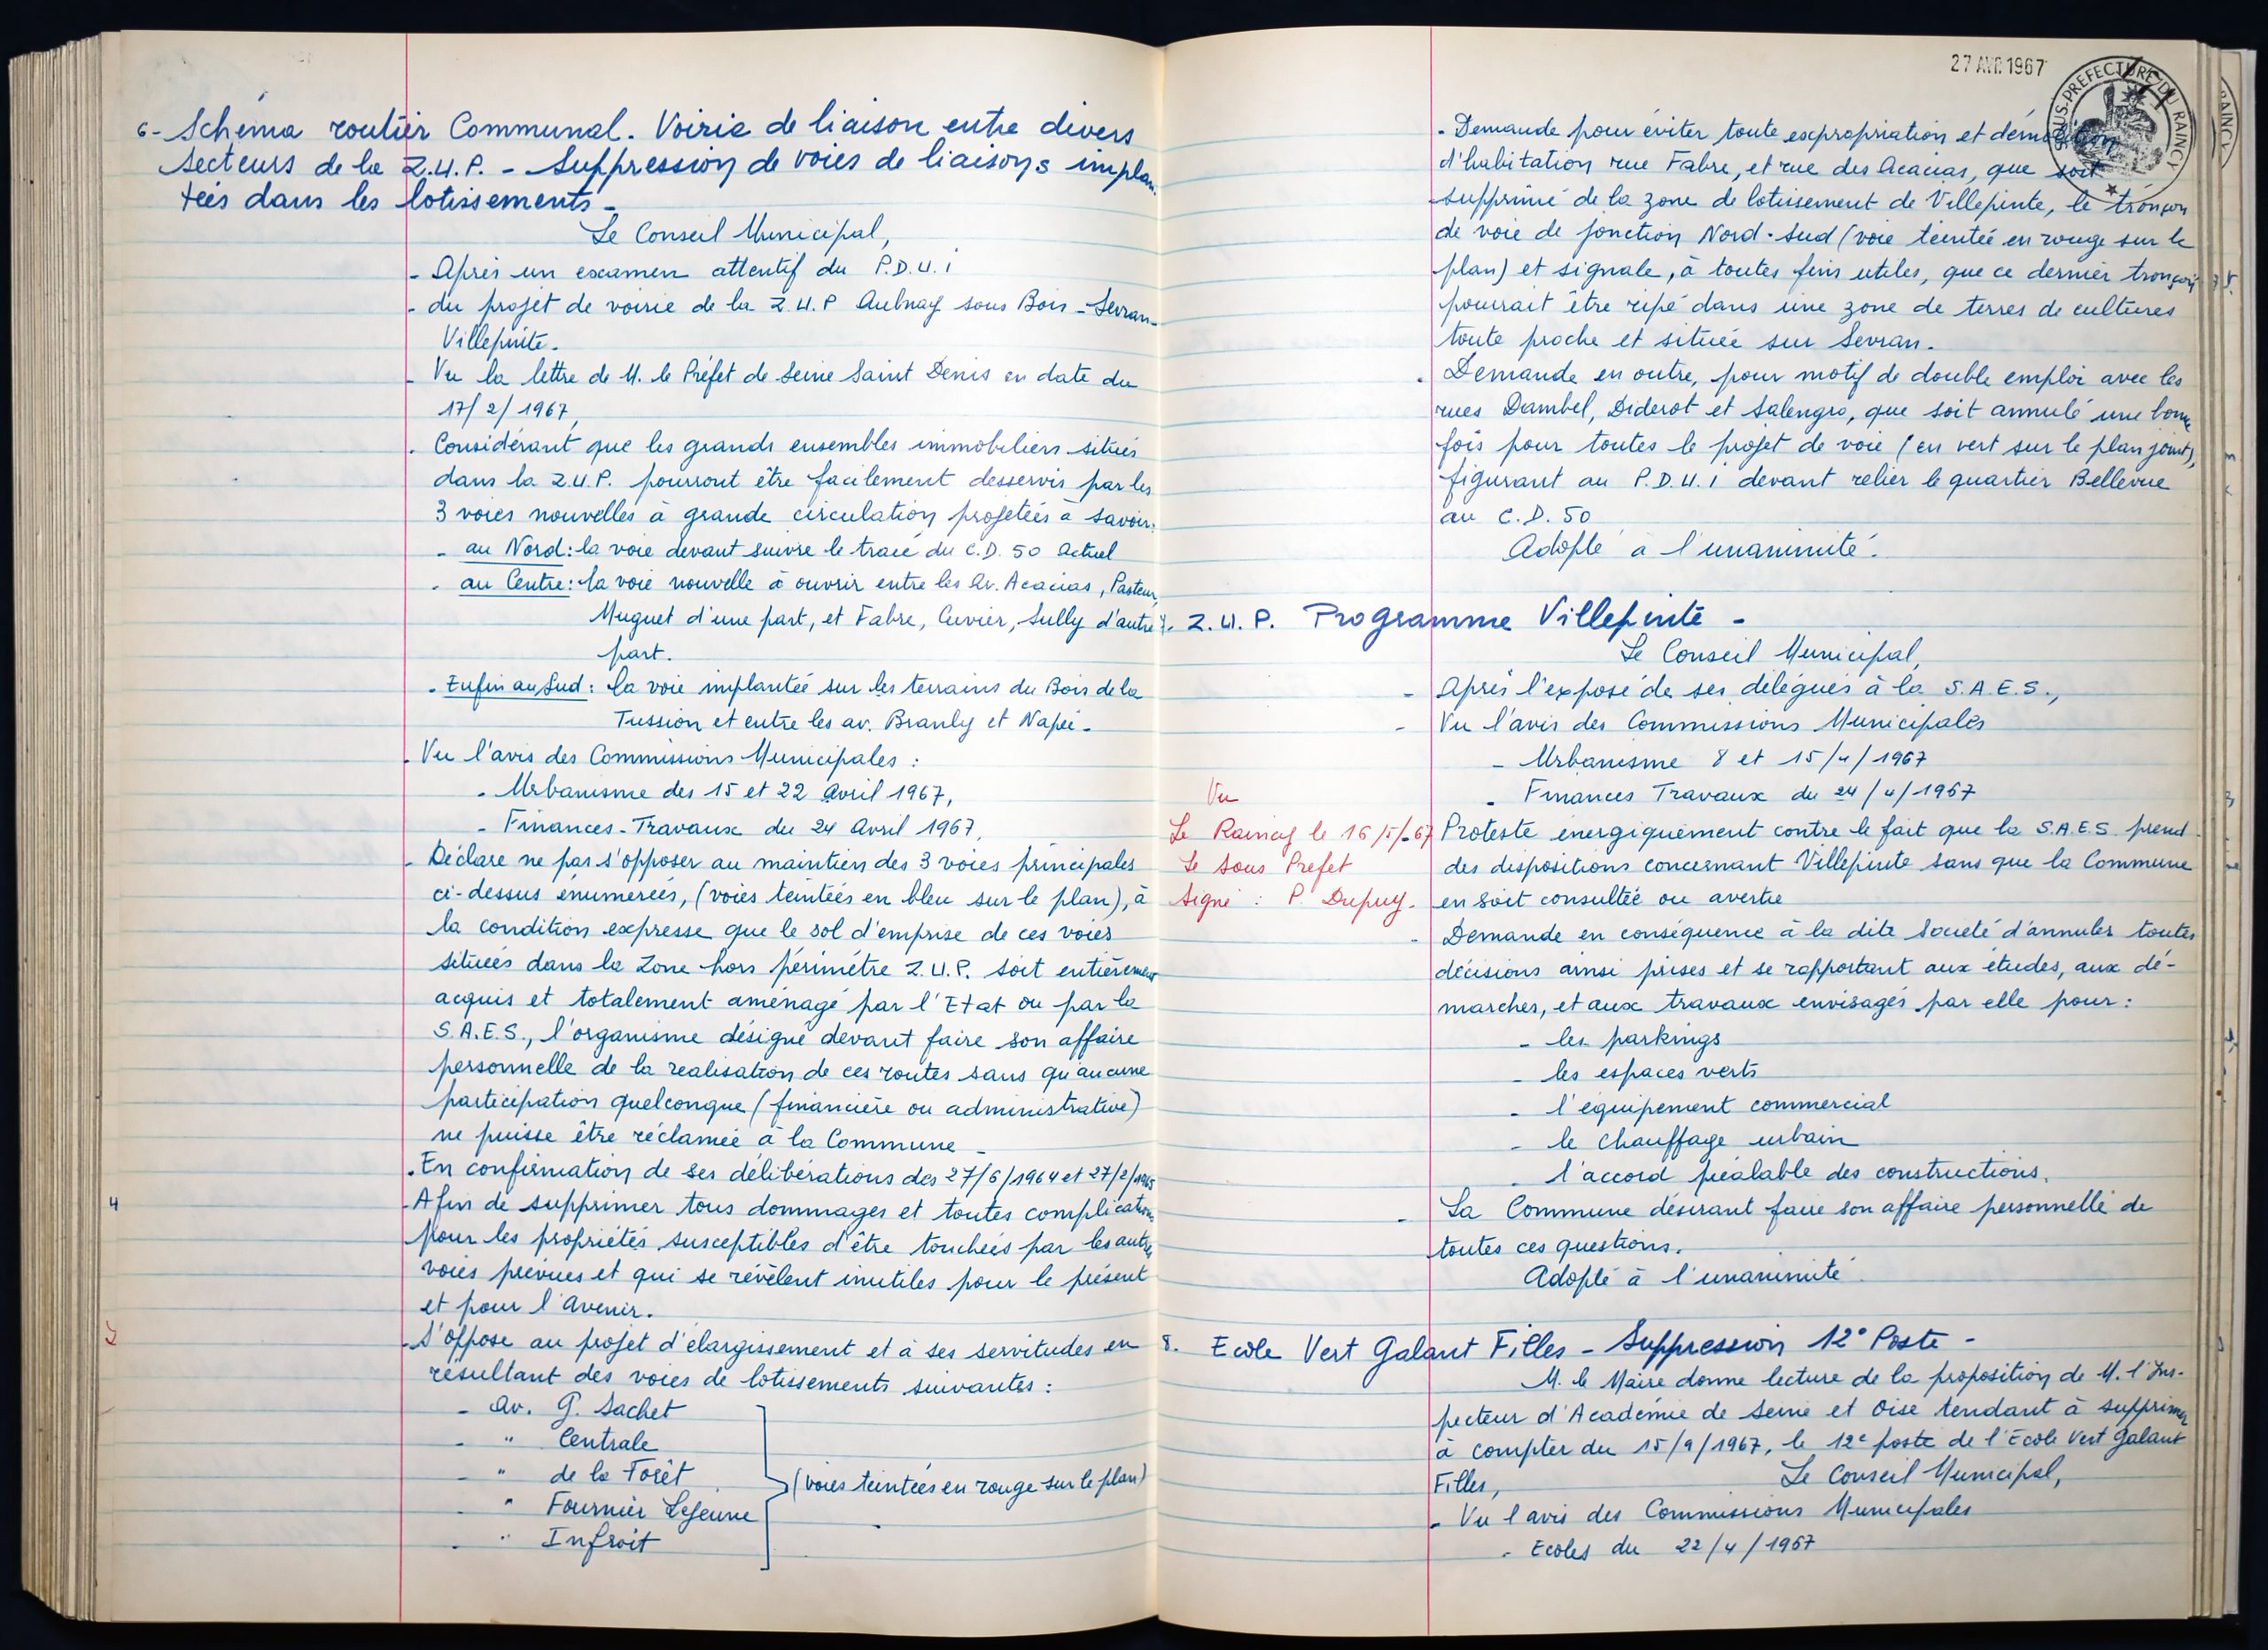 6- Schéma routier Communal. Voirie de liaison entre divers
secteurs de la Z.U.P. - Suppression de voies de liaisons implan-
tées dans les lotissements -
Le Conseil Municipal,
- Après un examen attentif du P.D.U.i
- du projet de voirie de la Z.U.P Aulnay sous Bois - Sevran-
Villepinte.
- Vu la lettre de M. le Préfet de Seine Saint Denis en date du
17/2/1967,
. Considérant que les grands ensembles immobiliers situés
dans la Z.U.P. pourront être facilement desservis par les
3 voies nouvelles à grande circulation projetées à savoir:
- au Nord: la voie devant suivre le tracé du C.D. 50 Actuel
. au Centre: la voie nouvelle à ouvrir entre les Av. Acacias, Pasteur,
Muguet d'une part, et Fabre, Cuvier, Sully d'autre
part.
. Enfin au Sud: la voie implantée sur les terrains du Bois de la
Tussion et entre les av. Branly et Napée-
. Vu l'avis des Commissions Municipales :
. Urbanisme des 15 et 22 Avril 1967,
- Finances-Travaux du 24 Avril 1967,
- Déclare ne pas s'opposer au maintien des 3 voies principales
ci-dessus énumérées, (voies teintées en bleu sur le plan), à
la condition expresse que le sol d'emprise de ces voies
situées dans la Zone hors périmètre Z.U.P. soit entièrement
acquis et totalement aménagé par l'Etat ou par la
S.A.E.S., l'organisme désigné devant faire son affaire
personnelle de la réalisation de ces routes sans qu'aucune
participation quelconque (financière ou administrative)
ne puisse être réclamée à la Commune -
. En confirmation de ses délibérations des 27/6/1964 et 27/2/1965
4
- Afin de supprimer tous dommages et toutes complications
pour les propriétés susceptibles d'être touchées par les autres
voies prévues et qui se révèlent inutiles pour le présent
et pour l'Avenir.
- S'oppose au projet d'élargissement et à ses servitudes en
résultant des voies de lotissements suivantes :
- Av. G. Sachet
- " Centrale
- " de la Forêt
(voies teintées en rouge sur le plan)
- " Fournier Lejeune
. " Infroit
27 AVR 1967
SOUS-PREFECTURE DU RAINCY
- Demande pour éviter toute expropriation et démolition
d'habitation rue Fabre, et rue des Acacias, que soit
supprimé de la zone de lotissement de Villepinte, le tronçon
de voie de jonction Nord-Sud (voie teintée en rouge sur le
plan) et signale, à toutes fins utiles, que ce dernier tronçon
pourrait être ripé dans une zone de terres de cultures
toute proche et située sur Sevran.
. Demande en outre, pour motif de double emploi avec les
rues Dambel, Diderot et Salengro, que soit annulé une bonne
fois pour toutes le projet de voie (en vert sur le plan joint),
figurant au P.D.U.i devant relier le quartier Bellevue
au C.D. 50
Adopté à l'unanimité.
7. Z.U.P. Programme Villepinte -
Le Conseil Municipal,
- Après l'exposé de ses délégués à la S.A.E.S.,
- Vu l'avis des Commissions Municipales
- Urbanisme 8 et 15/4/1967
- Finances Travaux du 24/4/1967
Vu
Le Raincy le 16/5/-67
Le Sous Préfet
Signé : P. Dupuy.
Proteste énergiquement contre le fait que la S.A.E.S. prend
des dispositions concernant Villepinte sans que la Commune
en soit consultée ou avertie
- Demande en conséquence à la dite Société d'annuler toutes
décisions ainsi prises et se rapportant aux études, aux dé-
marches, et aux travaux envisagés par elle pour :
- les parkings
- les espaces verts
- l'équipement commercial
- le chauffage urbain
. l'accord préalable des constructions.
- La Commune désirant faire son affaire personnelle de
toutes ces questions.
Adopté à l'unanimité.
8. Ecole Vert Galant Filles - Suppression 12° Poste -
M. le Maire donne lecture de la proposition de M. l'Ins-
pecteur d'Académie de Seine et Oise tendant à supprimer
à compter du 15/9/1967, le 12e poste de l'Ecole Vert Galant
Filles,
Le Conseil Municipal,
- Vu l'avis des Commissions Municipales
- Ecoles du 22/4/1967